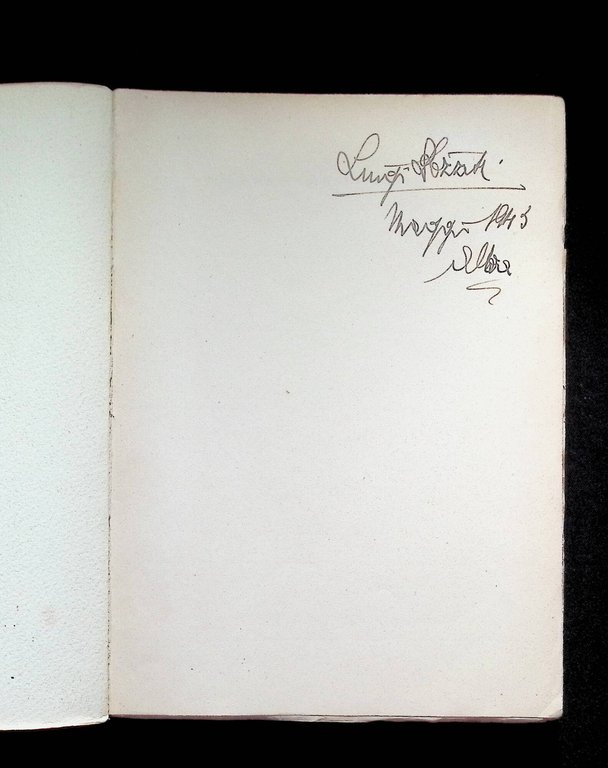 Luigi
Maggio 1945
Alba